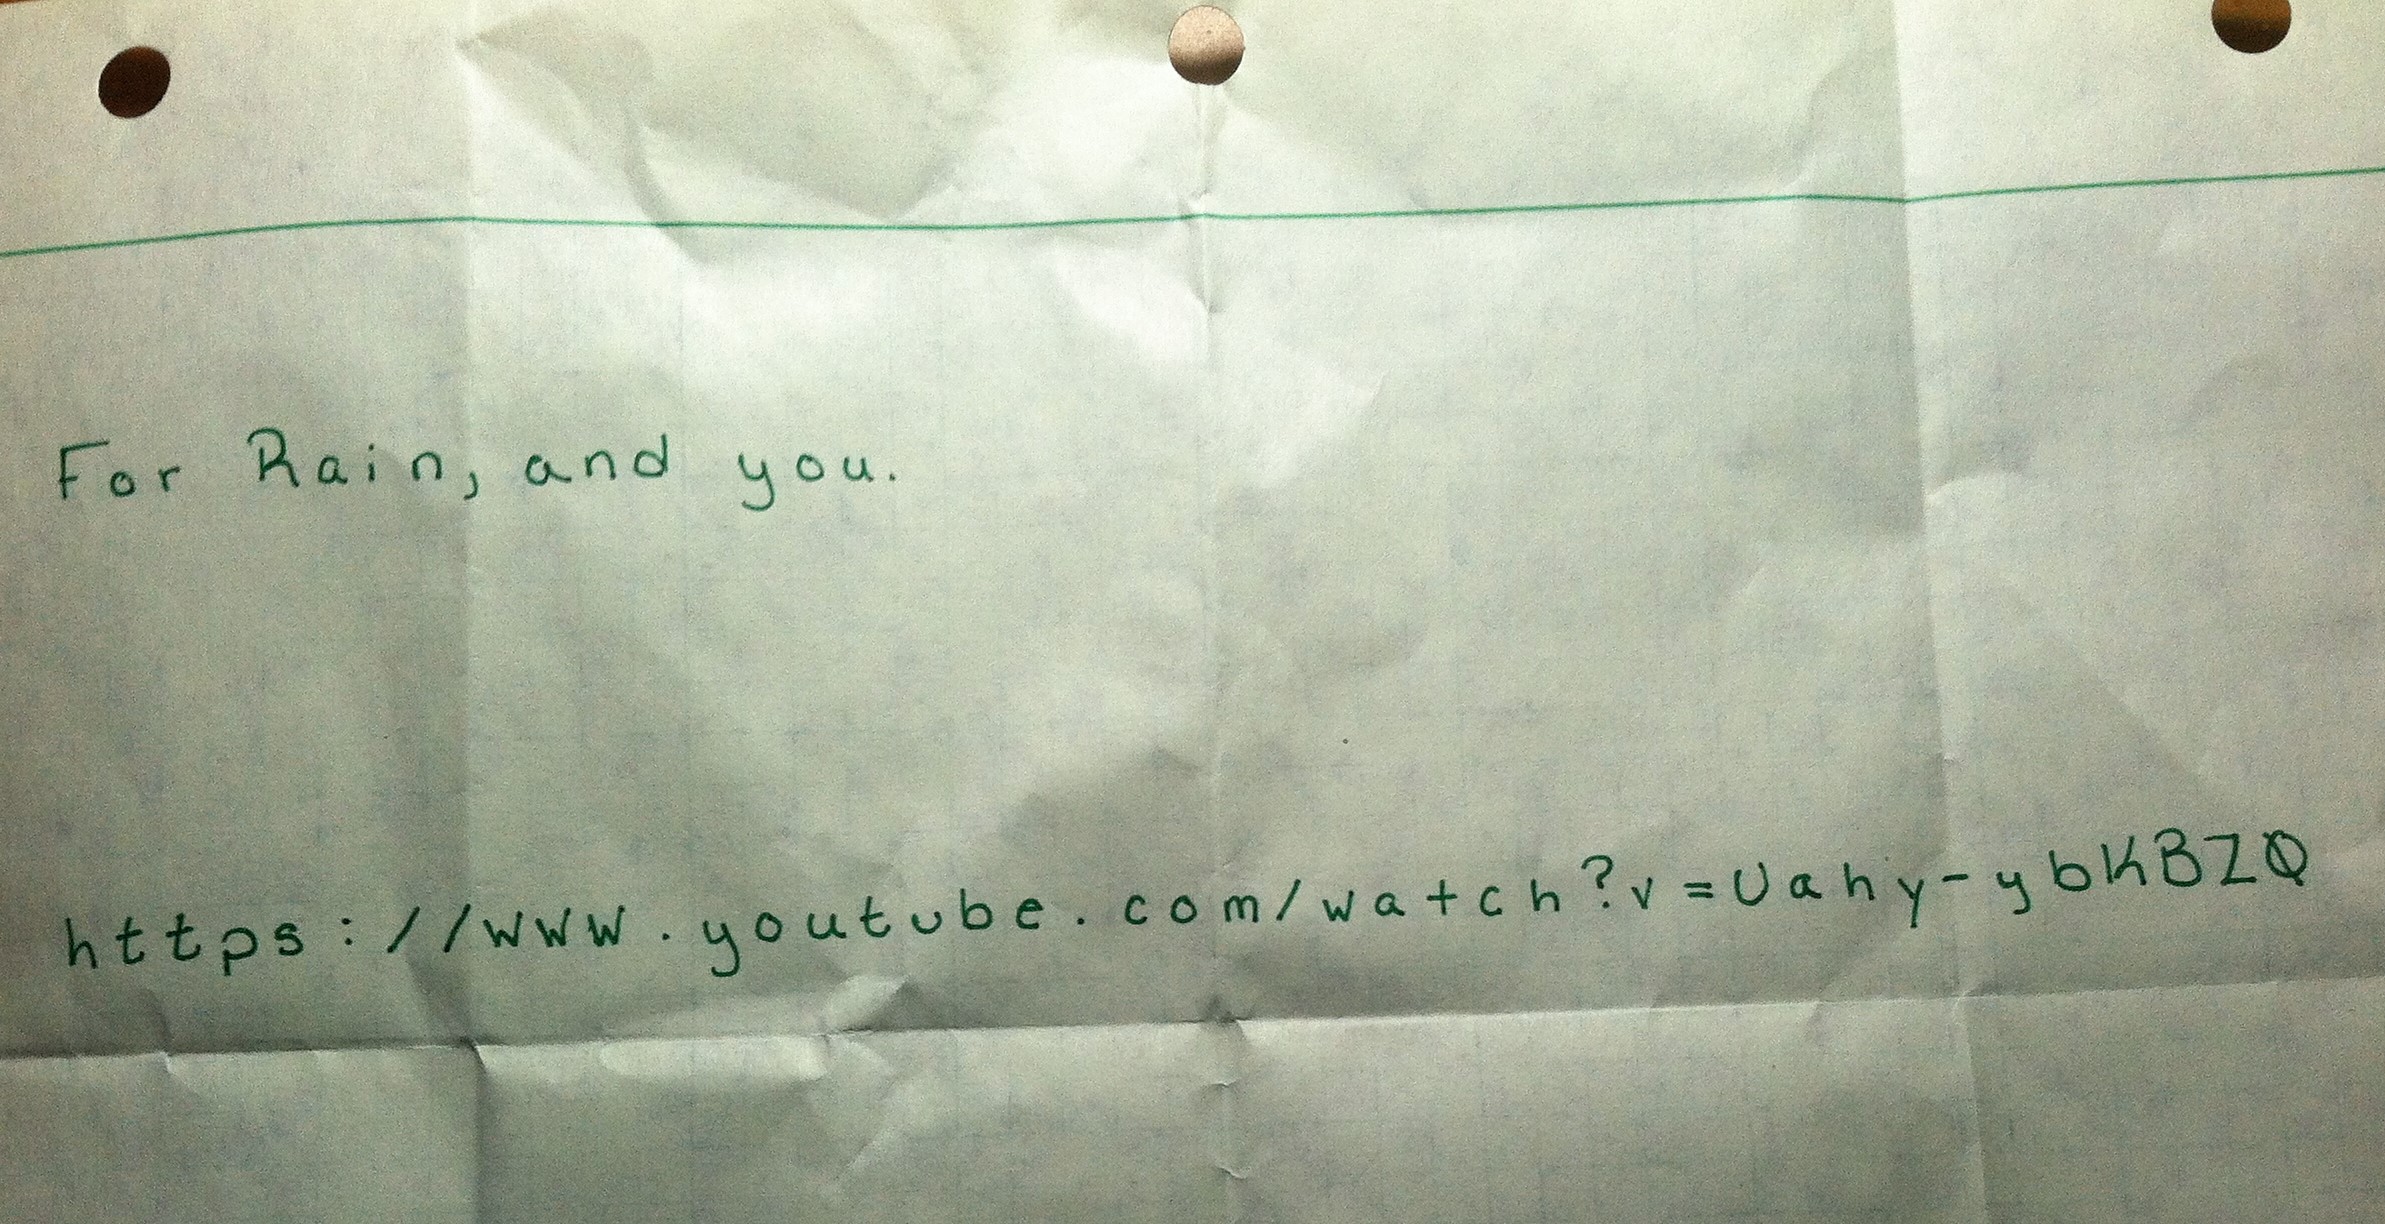 For Rain, and you.
https://www.youtube.com/watch?v=Uahy-ybKBZQ